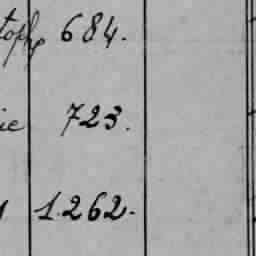 toph 684.
ie 723.
1.262.